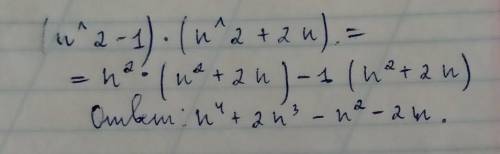 (n^2-1)·(n^2+2n).=
=n²·(n²+2n)-1(n²+2n)
Ответ: n⁴+2n³-n²-2n.